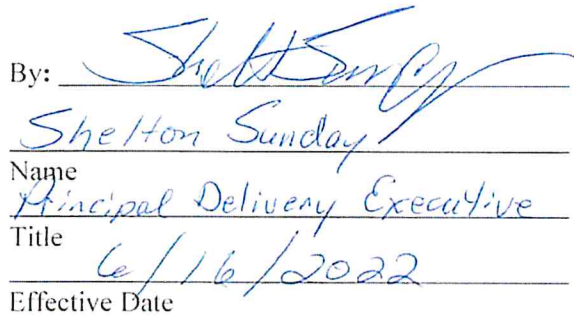 By: Shelton Sunday
Shelton Sunday
Name
Principal Delivery Executive
Title
6/16/2022
Effective Date